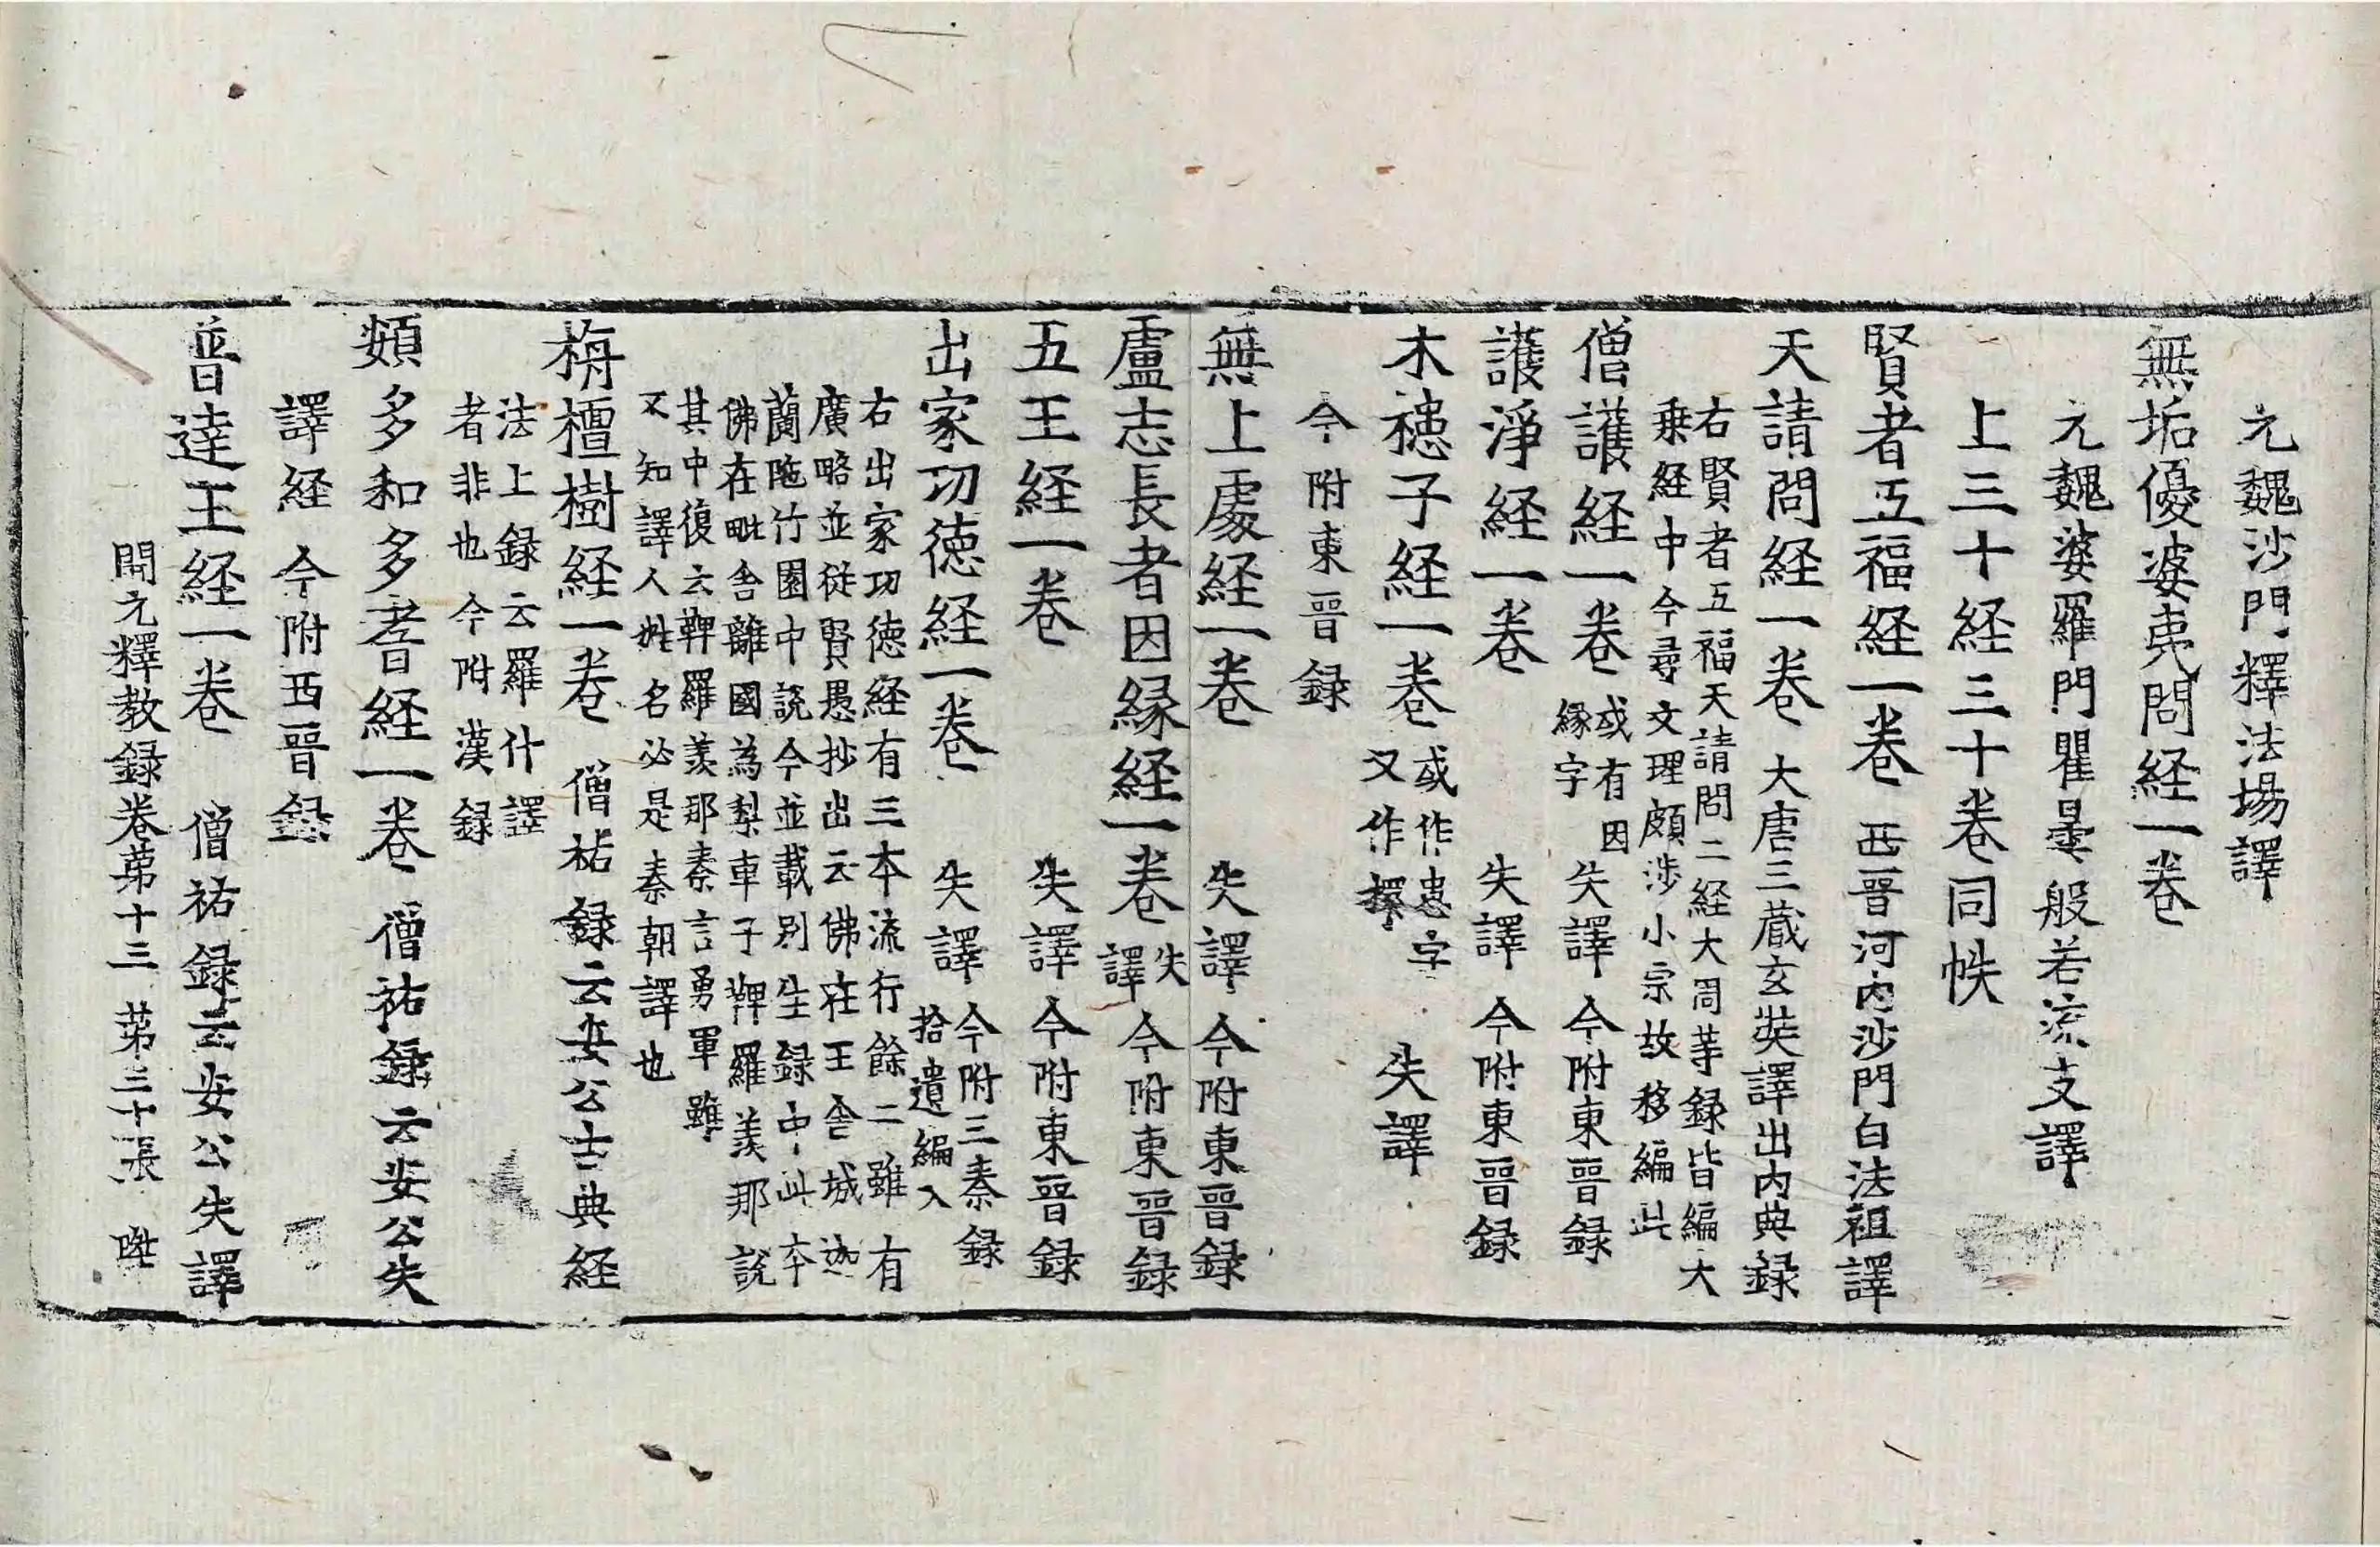 元魏沙門釋法場譯
無垢優婆夷問経一卷
元魏婆羅門瞿曇般若流支譯
上三十経三十卷同帙
賢者五福経一卷 西晉河内沙門白法祖譯
天請問経一卷 大唐三蔵玄奘譯出内典録
右賢者五福天請問二経大周等録皆編大
乗経中今尋文理頗涉小宗故移編此
僧護経一卷 或有因縁字 失譯 今附東晉録
護淨経一卷 失譯 今附東晉録
木槵子経一卷 或作患字又作櫸 失譯
今附東晉録
無上處経一卷 失譯 今附東晉録
盧志長者因緣経一卷 失譯 今附東晉録
五王経一卷 失譯 今附東晉録
出家功德経一卷 失譯 今附三秦録拾遺編入
右出家功德経有三本流行餘二雖有
廣略並従賢愚抄出云佛在王舍城迦
蘭陁竹園中説今並載別生録中此本
佛在毗舍離國為梨車子鞞羅羨那說
其中復云鞞羅羨那秦言勇軍雖
不知譯人姓名必是秦朝譯也
栴檀樹経一卷 僧祐録云安公古典経
法上録云羅什譯
者非也今附漢録
頞多和多耆経一卷 僧祐録云安公失
譯経 今附西晉録
普達王経一卷 僧祐録云安公失譯
開元釋教録卷苐十三 苐三十張